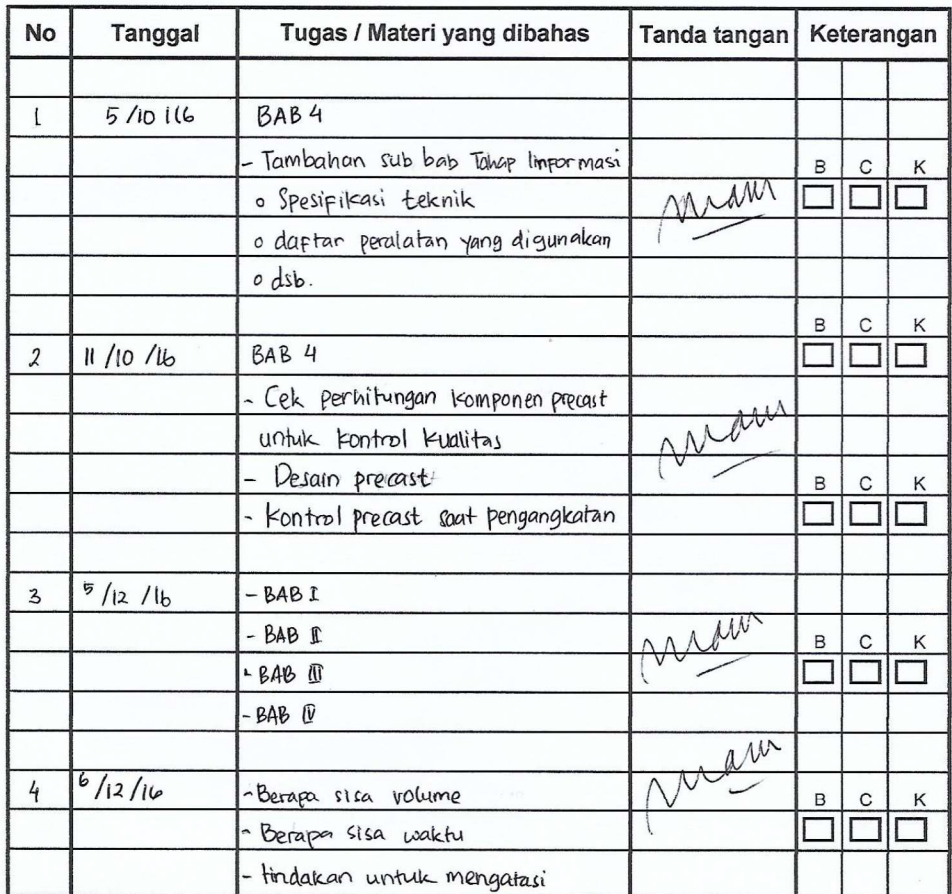 No Tanggal Tugas / Materi yang dibahas Tanda tangan Keterangan
1 5/10/16 BAB 4
- Tambahan sub bab Tahap Iinformasi B C K
o Spesifikasi teknik
o daftar peralatan yang digunakan
o dsb.
B C K
2 11/10/16 BAB 4
- Cek perhitungan komponen precast
untuk kontrol kualitas
- Desain precast B C K
- Kontrol precast saat pengangkatan
3 5/12/16 - BAB I
- BAB II B C K
- BAB III
- BAB IV
4 6/12/16 - Berapa sisa volume B C K
- Berapa sisa waktu
- tindakan untuk mengatasi